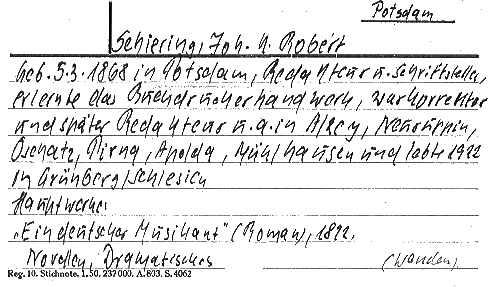 Potsdam
Schiering, Joh. A. Robert
Geb. 5.3.1868 in Potsdam, Redakteur u. Schriftsteller,
erlernte das Buchdruckerhandwerk, war Korrektor
und später Redakteur u.a. in Alzey, Neuruppin,
Oschatz, Pirna, Apolda, Mühlhausen und lebte 1922
in Grünberg/Schlesien
Hauptwerke:
"Ein deutscher Musikant" (Roman), 1892,
Novellen, Dramatisches
(wenden)
Reg. 10. Stichnote. 1. 50. 237 000. A. 803. S. 4062